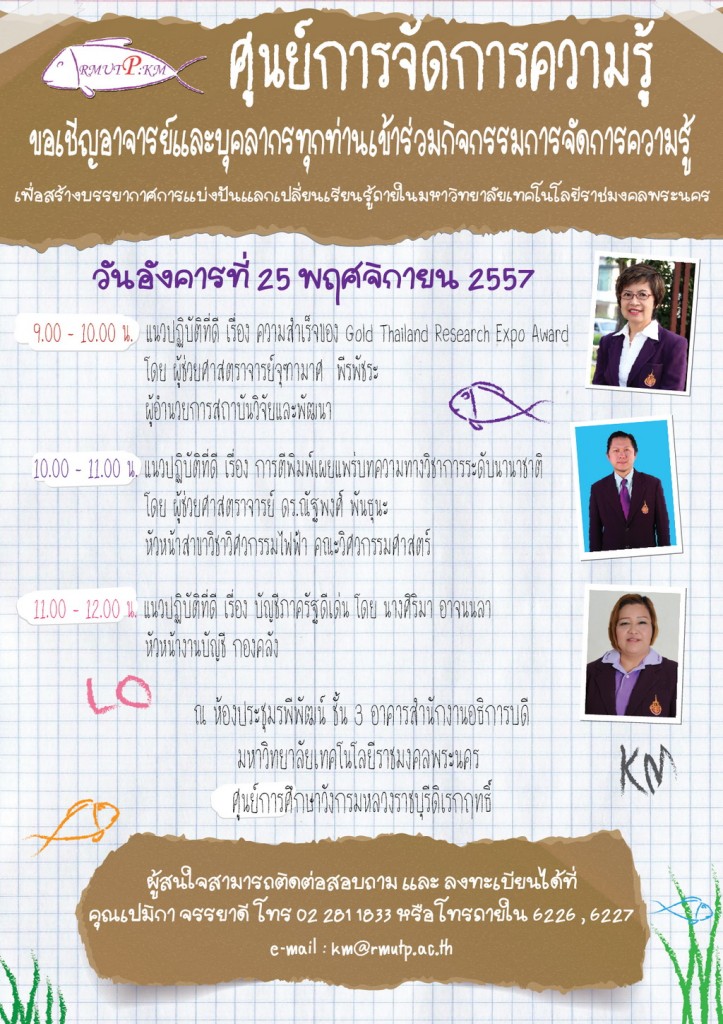 RMUTP:KM
ศูนย์การจัดการความรู้
ขอเชิญอาจารย์และบุคลากรทุกท่านเข้าร่วมกิจกรรมการจัดการความรู้
เพื่อสร้างบรรยากาศการแบ่งปันแลกเปลี่ยนเรียนรู้ภายในมหาวิทยาลัยเทคโนโลยีราชมงคลพระนคร
วันอังคารที่ 25 พฤศจิกายน 2557
9.00 - 10.00 น. แนวปฏิบัติที่ดี เรื่อง ความสำเร็จของ Gold Thailand Research Expo Award
โดย ผู้ช่วยศาสตราจารย์จุฑามาศ พีรพัชระ
ผู้อำนวยการสถาบันวิจัยและพัฒนา
10.00 - 11.00 น. แนวปฏิบัติที่ดี เรื่อง การตีพิมพ์เผยแพร่บทความทางวิชาการระดับนานาชาติ
โดย ผู้ช่วยศาสตราจารย์ ดร.ณัฐพงศ์ พันธุนะ
หัวหน้าสาขาวิชาวิศวกรรมไฟฟ้า คณะวิศวกรรมศาสตร์
11.00 - 12.00 น. แนวปฏิบัติที่ดี เรื่อง บัญชีภาครัฐดีเด่น โดย นางศิริมา อาจนนลา
หัวหน้างานบัญชี กองคลัง
LO
ณ ห้องประชุมรพีพัฒน์ ชั้น 3 อาคารสำนักงานอธิการบดี
มหาวิทยาลัยเทคโนโลยีราชมงคลพระนคร
KM
ศูนย์การศึกษาวังกรมหลวงราชบุรีดิเรกฤทธิ์
ผู้สนใจสามารถติดต่อสอบถาม และ ลงทะเบียนได้ที่
คุณเปมิกา จรรยาดี โทร 02 281 1833 หรือโทรภายใน 6226 , 6227
e-mail : km@rmutp.ac.th